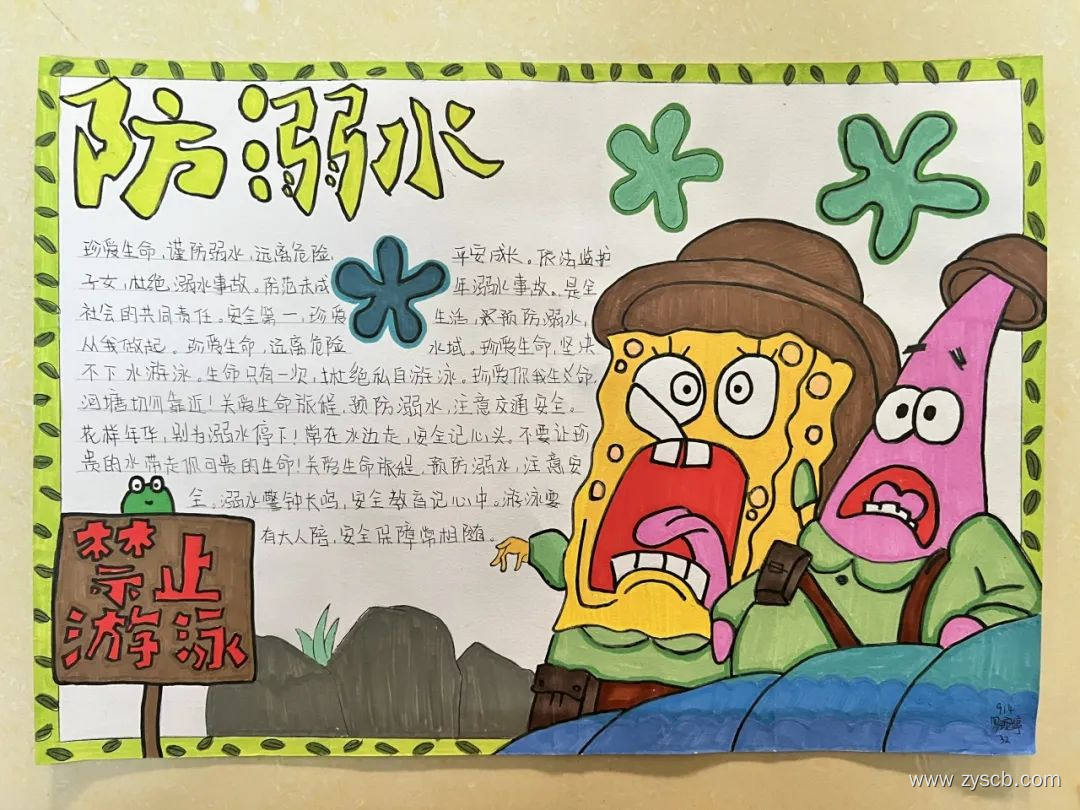 防溺水
珍爱生命，谨防溺水，远离危险，平安成长。依法监护
子女，杜绝溺水事故。防范未成年溺水事故。是全
社会的共同责任。安全第一，珍爱生活，要预防溺水，
从我做起。珍爱生命，远离危险水域。珍爱生命，坚决
不下水游泳。生命只有一次，杜绝私自游泳。珍爱你我生命，
河塘切勿靠近！关爱生命旅程，预防溺水，注意交通安全。
花样年华，别为溺水停下！常在水边走，安全记心头。不要让珍
贵的水带走你可贵的生命！关爱生命旅程，预防溺水，注意安
全。溺水警钟长鸣，安全教育记心中。游泳要
有大人陪，安全保障常相随。
禁止
游泳
914
32
www.zyscb.com